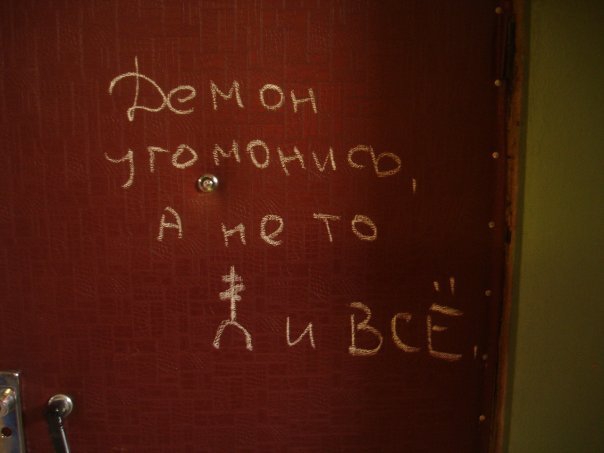 Демон
угомонись,
а не то
и всё..